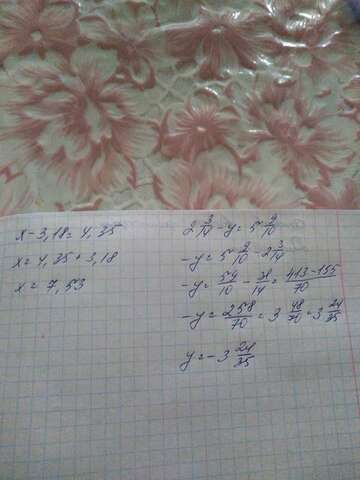 x-3,18=4,35
x=4,35+3,18
x=7,53
2 3/14 - y = 5 9/10
-y = 5 9/10 - 2 3/14
-y = 59/10 - 31/14 = 413-155/70
-y = 258/70 = 3 48/70 = 3 24/35
y = -3 24/35